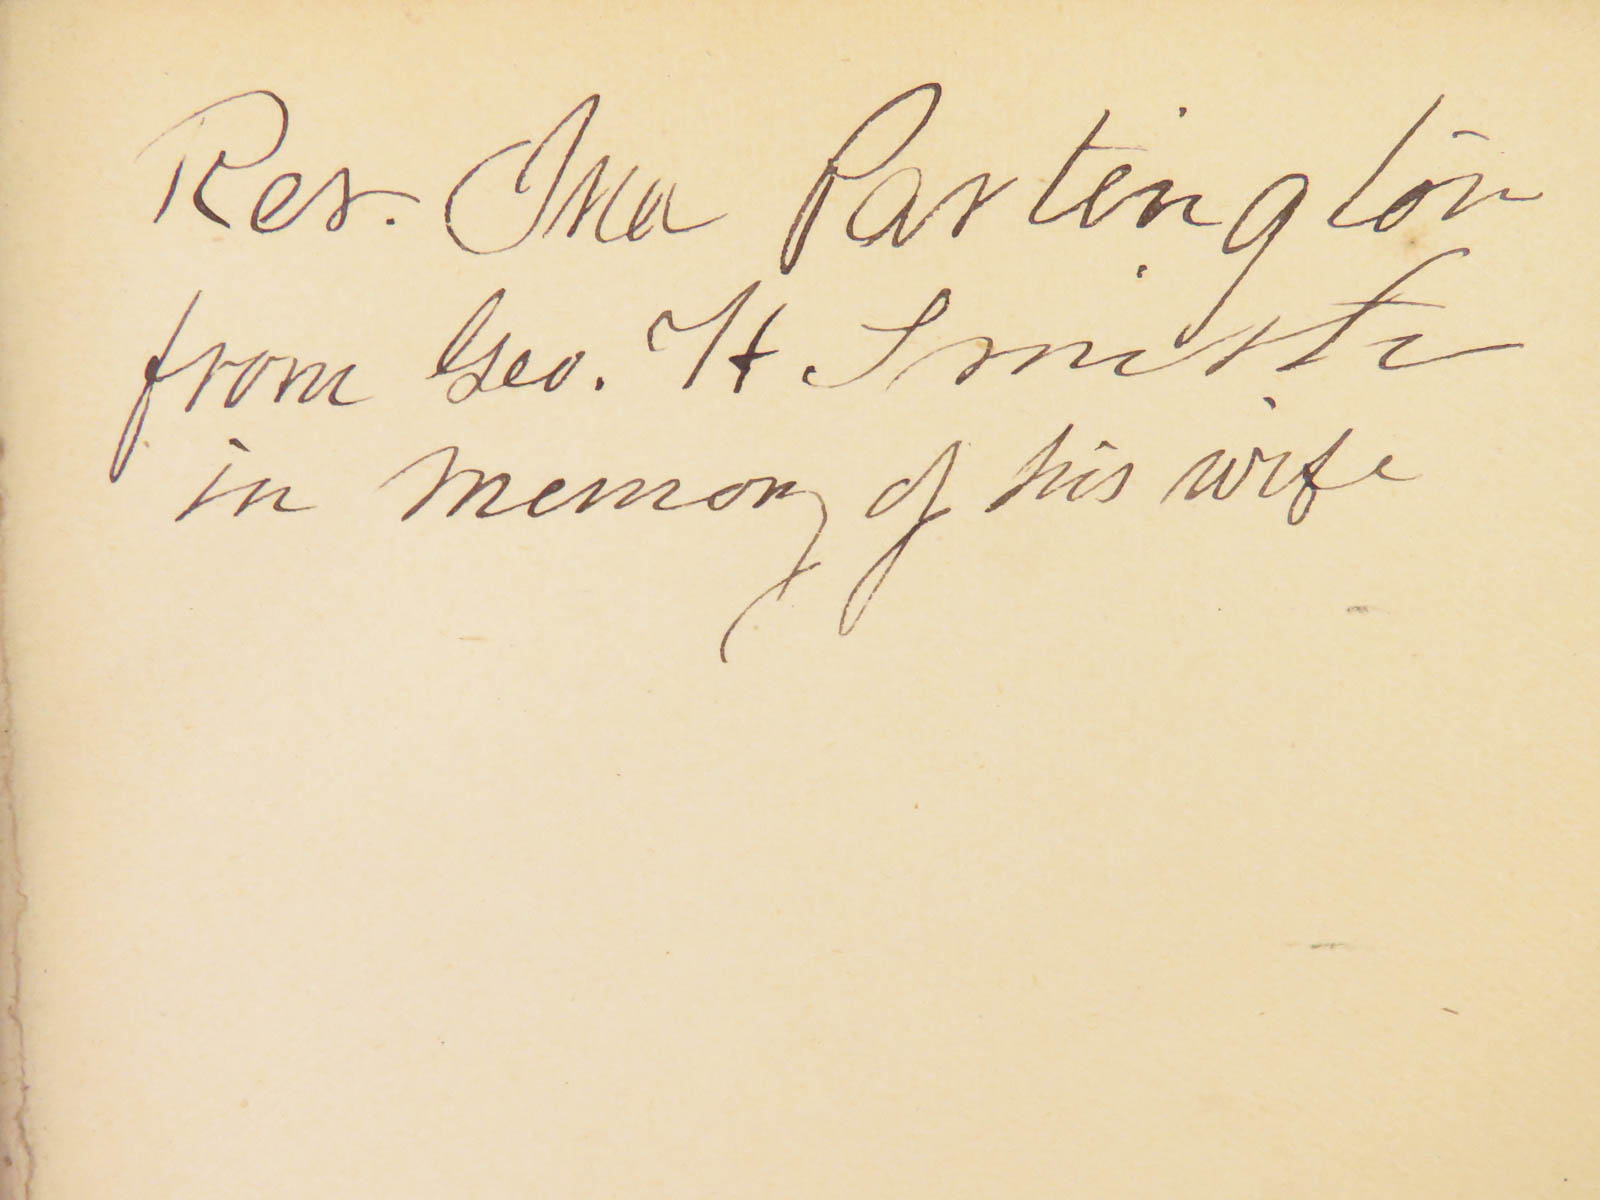 Rev. Ira Partington
from Geo. H Smith
in memory of his wife